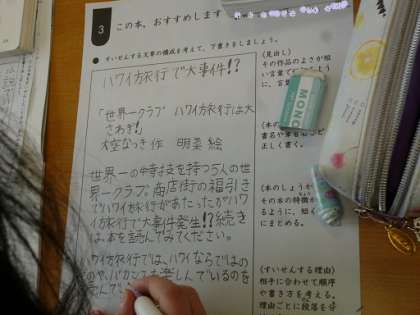 3 この本、おすすめします
すいせんする文章の構成を考えて、下書きをしましょう。
ハワイ旅行で大事件!?
「世界一クラブ ハワイ旅行は大
さわぎ!」
大空なつき 作 明菜 絵
世界一の特技を持つ5人の世
界一クラブ。商店街の福引き
でハワイ旅行があたったがハワ
イ旅行で大事件発生!?続き
は本を読んでみてください。
ハワイ旅行では、ハワイならではのも
のや、バカンスを楽しんでいるのを
読んで
(見出し)
その作品のよさが短
い言葉で
MONO
書名や
正しく書く。
(本のしょうか
その本の特徴が
るように、短く
にまとめる。
(すいせんする理由)
相手に合わせて順序
や書き方を考える。
理由ごとに段落を